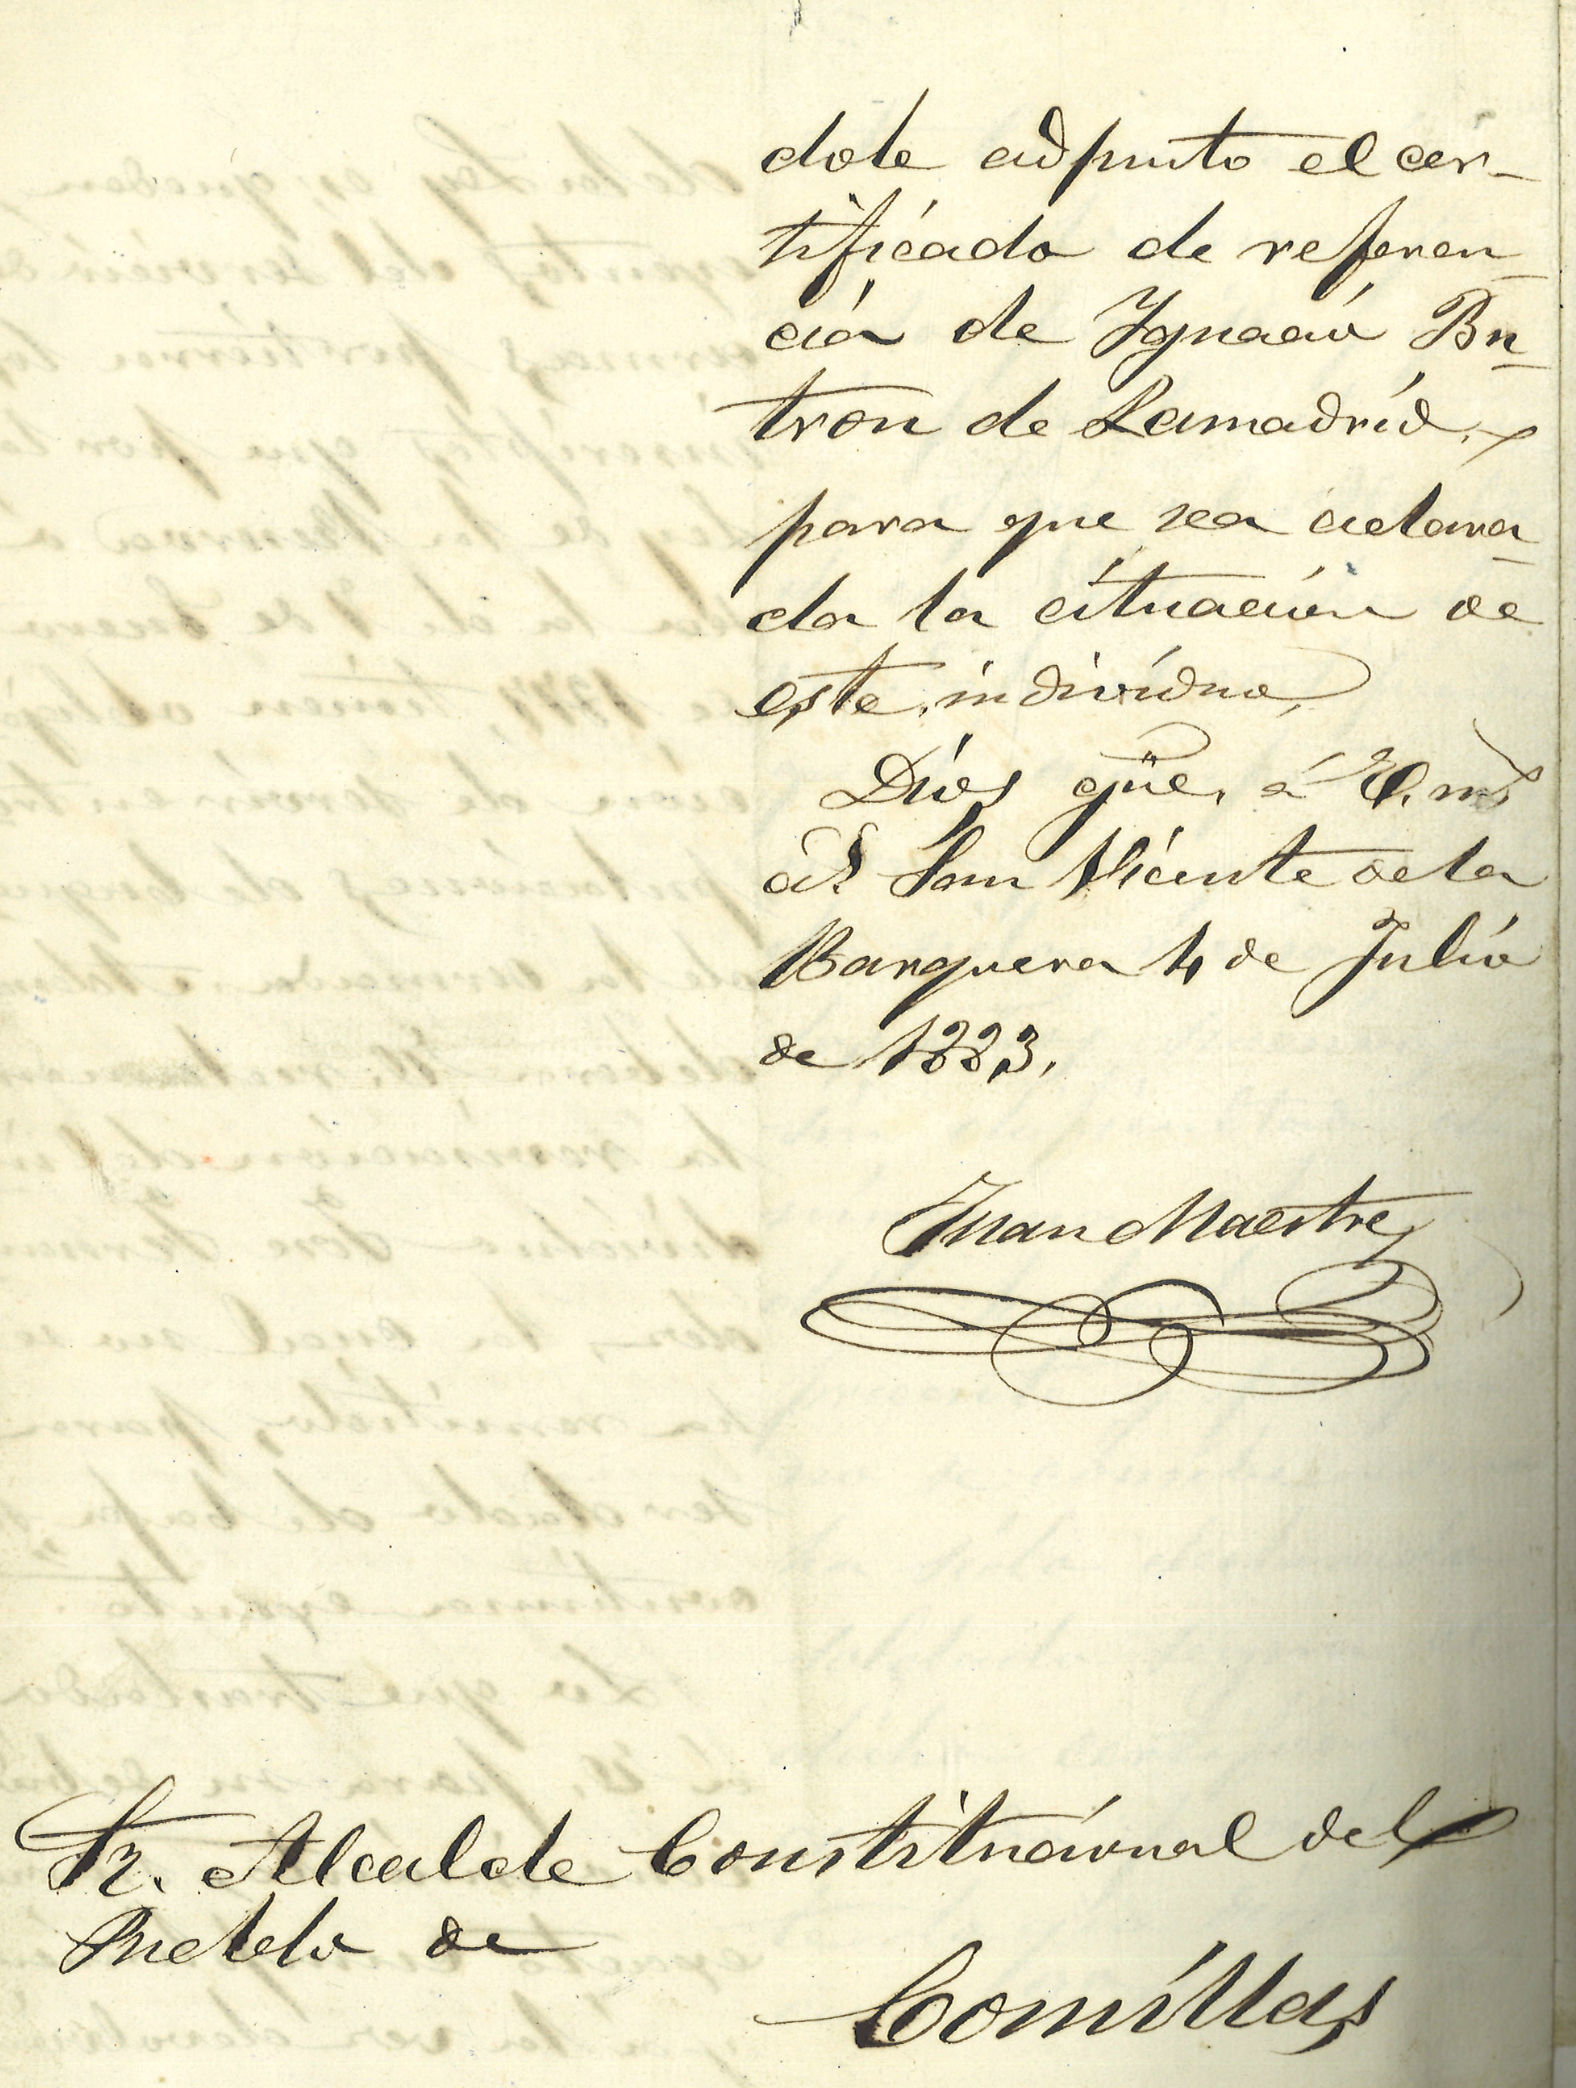 dole adjunto el cer-
tificado de referen-
cia de Ygnacio Bu-
tron de Lamadrid
para que sea aclara-
da la cituación de
este individuo,
Dios güe. á V. ms
as. San Vicente de la
Barquera 4 de Julio
de 1883.
Juan Maestre
Sr. Alcalde Constitucional del
Pueblo de
Comillas